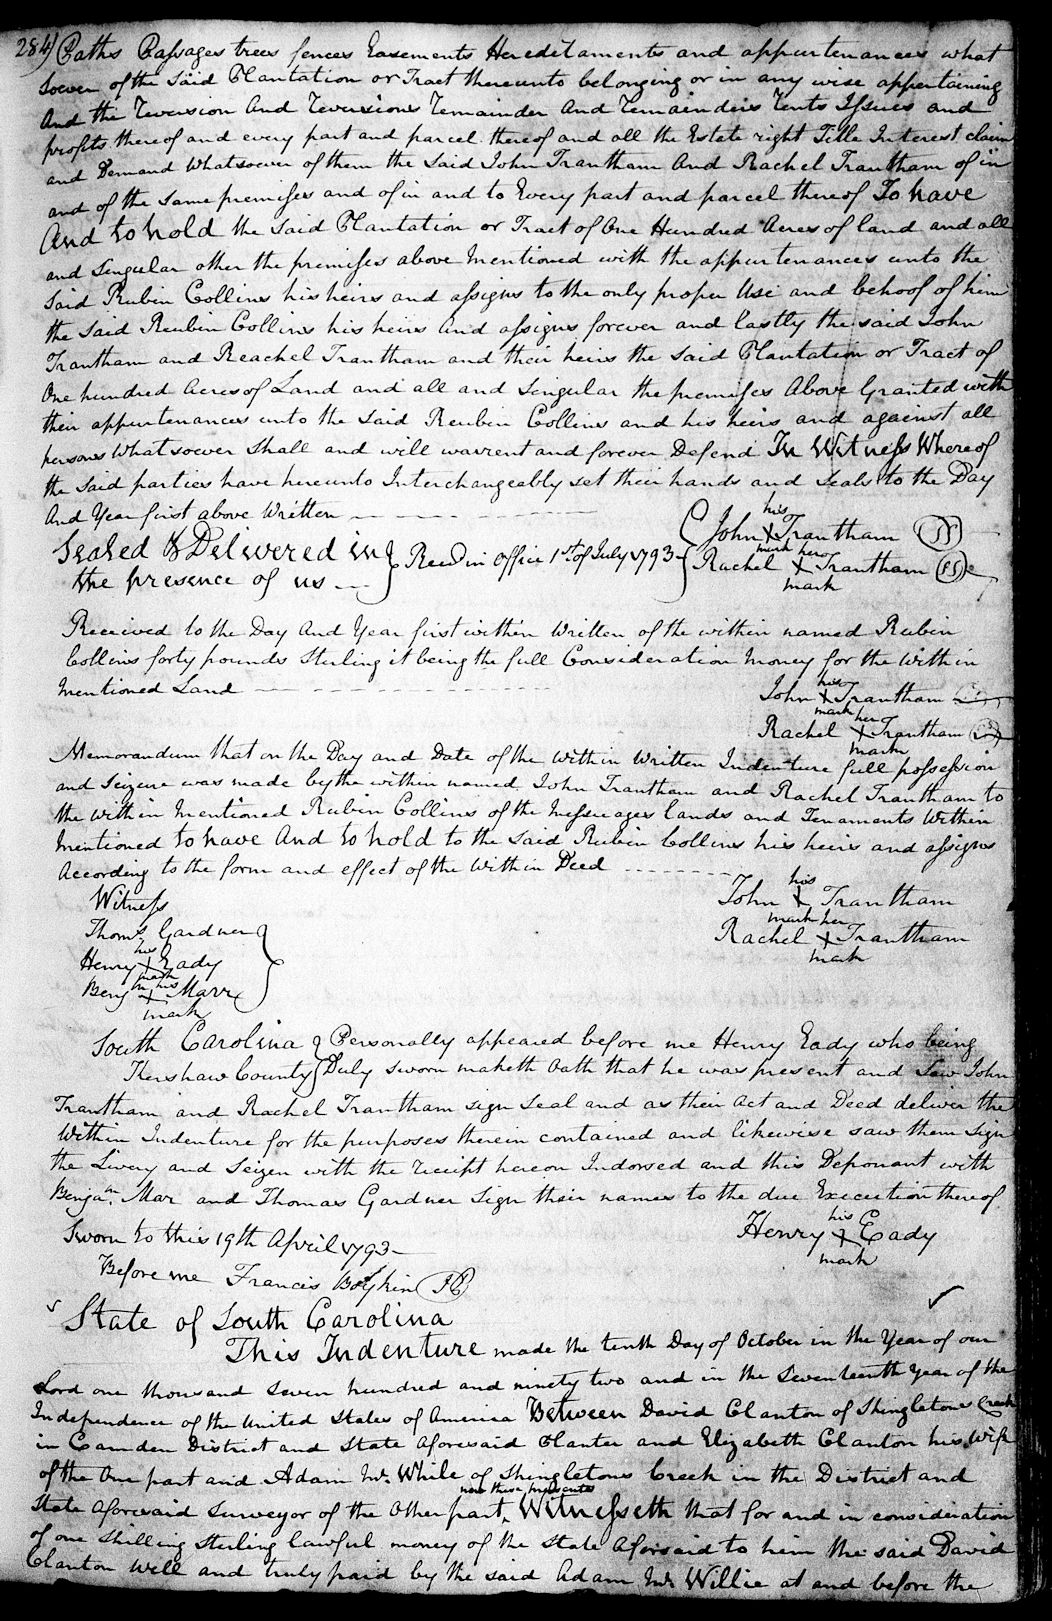 284) Paths Passages trees fences Easements Hereditaments and appurtenances what
soever of the Said Plantation or Tract thereunto belonging or in any wise appertaining
And the Reversion And Reversions Remainder And Remainders Rents Issues and
profits thereof and every part and parcel thereof and all the Estate right Title Interest claim
and Demand Whatsoever of them the Said John Trantham And Rachel Trantham of in
and of the Same premises and of in and to Every part and parcel thereof To have
And to hold the Said Plantation or Tract of One Hundred Acres of land and all
and Singular other the premises above Mentioned with the appurtenances unto the
Said Rubin Collins his heirs and assigns to the only proper Use and behoof of him
the Said Reubin Collins his heirs And assigns forever and lastly the said John
Trantham and Reachel Trantham and their heirs the Said Plantation or Tract of
One hundred Acres of Land and all and Singular the premises Above Granted with
their appurtenances unto the Said Reubin Collins and his heirs and against all
persons Whatsoever Shall and will warrent and forever Defend In Witness Whereof
the Said parties have hereunto Interchangeably set their hands and Seals to the Day
And Year first above Written
Sealed & Delivered in } Recd in office 1st of July 1793 { John his X mark Trantham (SS)
the presence of us } { Rachel her X mark Trantham (SS)
Received to the Day And Year first within Written of the within named Rubin
Collins forty pounds Sterling it being the full Consideration Money for the Within
Mentioned Land
John his X mark Trantham
Rachel her X mark Trantham
Memorandum that on the Day and Date of the Within Written Indenture full possession
and Seizene was made by the within named John Trantham and Rachel Trantham to
the within Mentioned Rubin Collins of the Messuages lands and Tenaments Within
Mentioned to have And to hold to the Said Rubin Collins his heirs and assigns
According to the form and effect of the Within Deed
John his X mark Trantham
Rachel her X mark Trantham
Witness
Thoms. Gardner
Henry his X mark Eady
Benjn his X mark Marr
South Carolina } Personally appeared before me Henry Eady who being
Kershaw County } Duly sworn maketh Oath that he was present and Saw John
Trantham and Rachel Trantham sign Seal and as their Act and Deed deliver the
Within Indenture for the purposes therein contained and likewise saw them Sign
the Livery and Seizen with the receipt hereon Indorsed and this Deponant with
Benjan. Mar and Thomas Gardner Sign their names to the due Execution thereof
Sworn to this 19th April 1793
Henry his X mark Eady
Before me Francis Boykin JP
State of South Carolina
This Indenture made the tenth Day of October in the Year of our
Lord one thousand Seven hundred and ninety two and in the Seventeenth Year of the
Independence of the United States of America Between David Clanton of Shingletons Creek
in Camden District and State Aforesaid Planter and Elizabeth Clanton his Wife
of the One part and Adam Mc. While of Shingletons Creek in the District and
State Aforesaid Surveyor of the Other part, now these presents Witnesseth that for and in consideration
of one Shilling Sterling lawful money of the State Aforsaid to him the said David
Clanton Well and truly paid by the said Adam Mc Willie at and before the